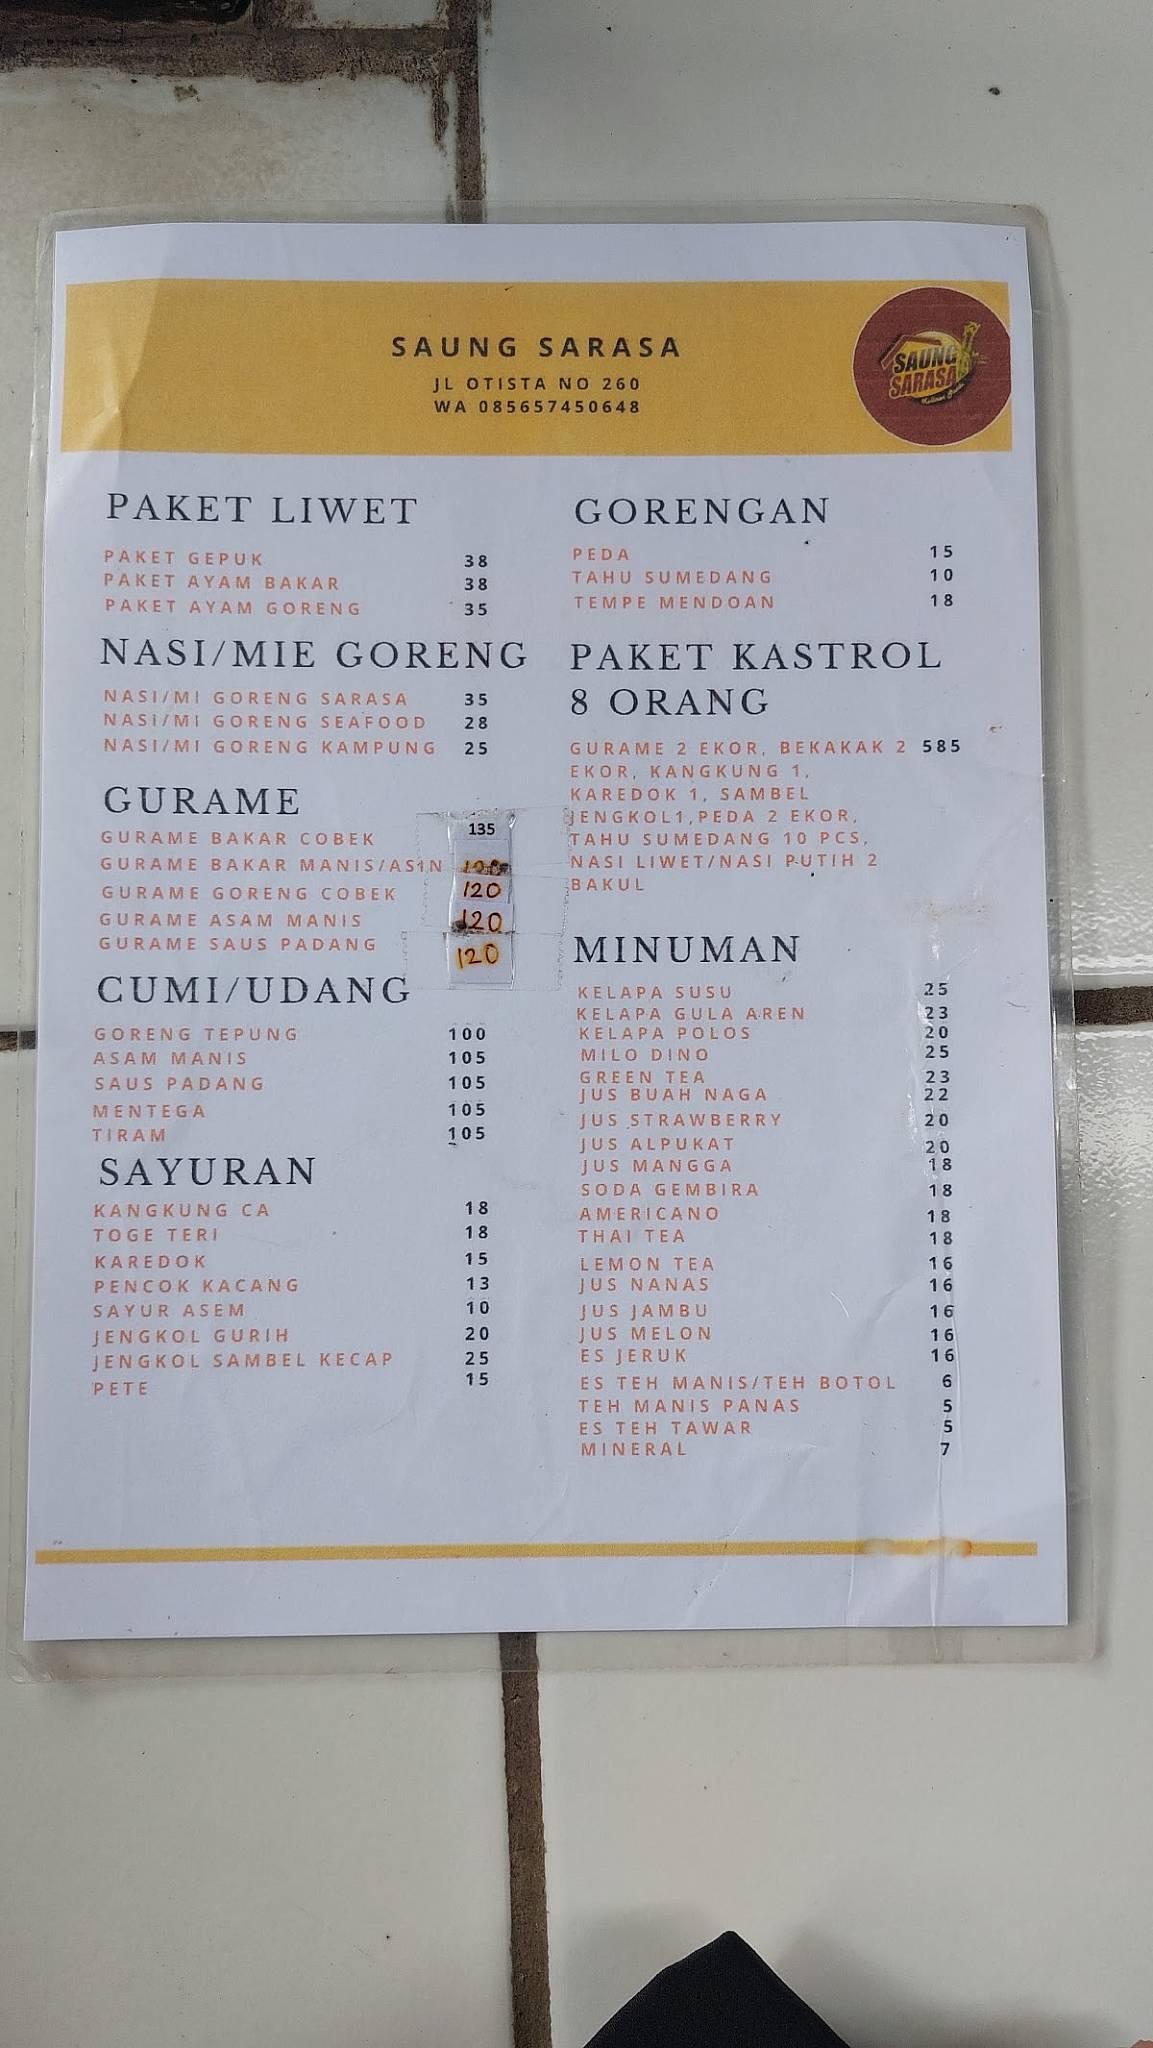 SAUNG SARASA
JL OTISTA NO 260
WA 085657450648
SAUNG
SARASA
PAKET LIWET
PAKET GEPUK 38
PAKET AYAM BAKAR 38
PAKET AYAM GORENG 35
NASI/MIE GORENG
NASI/MI GORENG SARASA 35
NASI/MI GORENG SEAFOOD 28
NASI/MI GORENG KAMPUNG 25
GURAME
GURAME BAKAR COBEK 135
GURAME BAKAR MANIS/ASIN
GURAME GORENG COBEK 120
GURAME ASAM MANIS 120
GURAME SAUS PADANG 120
CUMI/UDANG
GORENG TEPUNG 100
ASAM MANIS 105
SAUS PADANG 105
MENTEGA 105
TIRAM 105
SAYURAN
KANGKUNG CA 18
TOGE TERI 18
KAREDOK 15
PENCOK KACANG 13
SAYUR ASEM 10
JENGKOL GURIH 20
JENGKOL SAMBEL KECAP 25
PETE 15
GORENGAN
PEDA 15
TAHU SUMEDANG 10
TEMPE MENDOAN 18
PAKET KASTROL
8 ORANG
GURAME 2 EKOR, BEKAKAK 2 585
EKOR, KANGKUNG 1,
KAREDOK 1, SAMBEL
JENGKOL1,PEDA 2 EKOR,
TAHU SUMEDANG 10 PCS,
NASI LIWET/NASI PUTIH 2
BAKUL
MINUMAN
KELAPA SUSU 25
KELAPA GULA AREN 23
KELAPA POLOS 20
MILO DINO 25
GREEN TEA 23
JUS BUAH NAGA 22
JUS STRAWBERRY 20
JUS ALPUKAT 20
JUS MANGGA 18
SODA GEMBIRA 18
AMERICANO 18
THAI TEA 18
LEMON TEA 16
JUS NANAS 16
JUS JAMBU 16
JUS MELON 16
ES JERUK 16
ES TEH MANIS/TEH BOTOL 6
TEH MANIS PANAS 5
ES TEH TAWAR 5
MINERAL 7